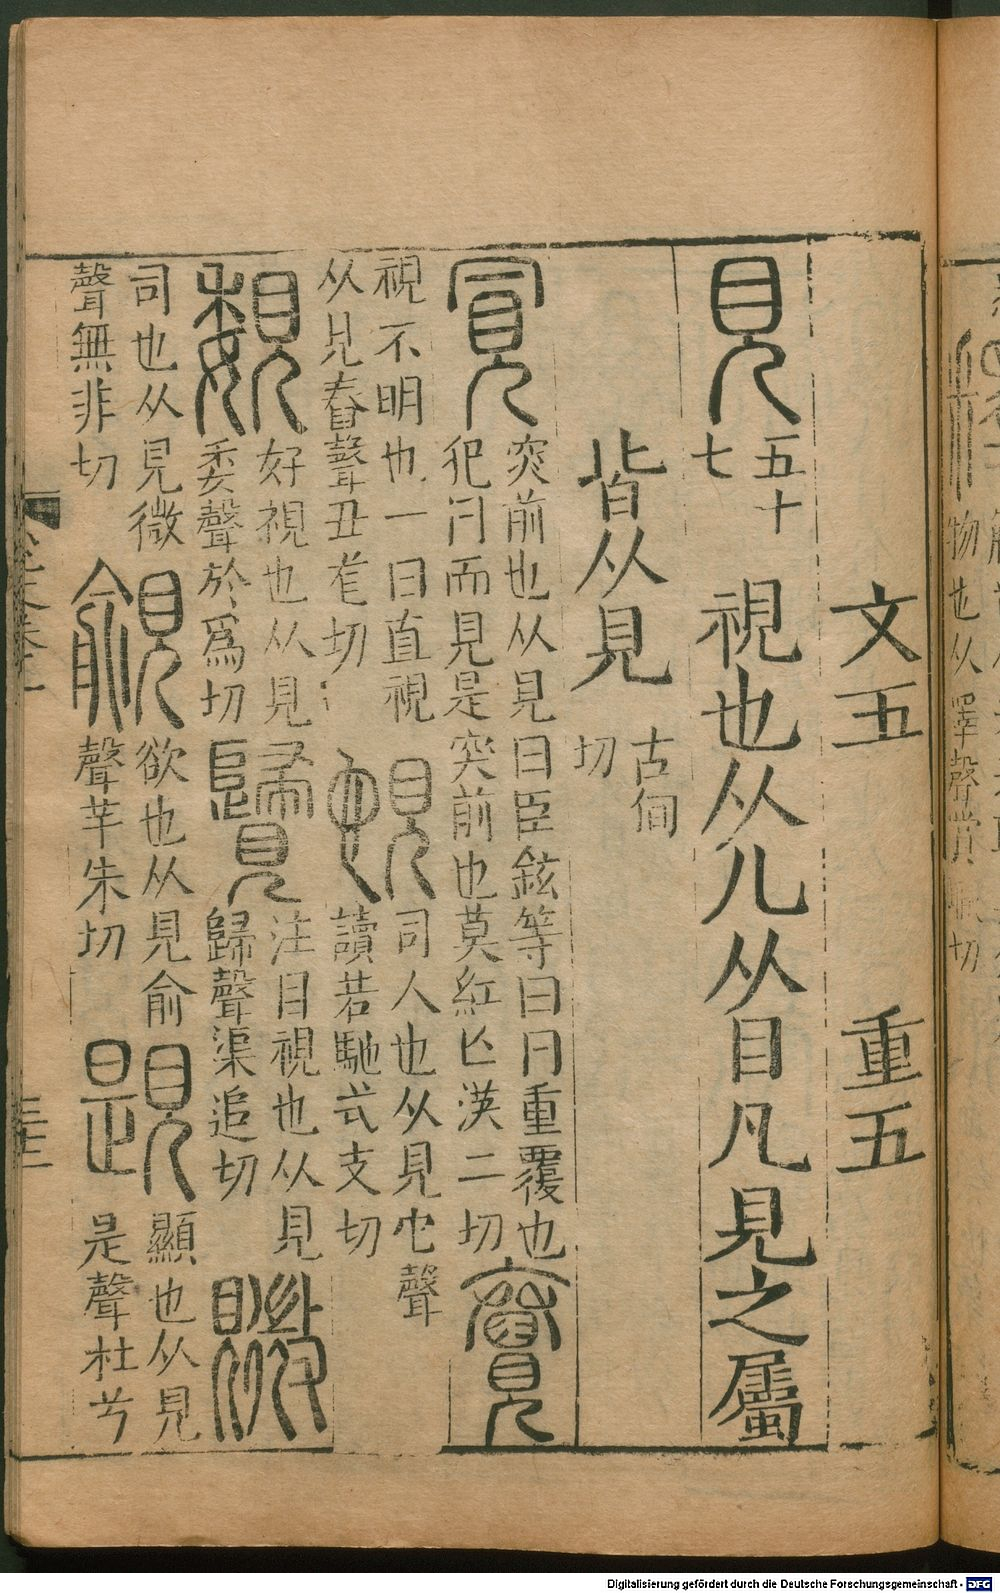 文五　重五
見 五十七 視也从儿从目凡見之屬
皆从見 古切
突前也从見曰臣鉉等曰冃重覆也
犯冃而見是突前也莫紅亾二切
視不明也一曰直視
从見舂聲丑尨切
司人也从見它聲
讀若馳式支切
覣 好視也从見
委聲於爲切
注目視也从見
歸聲渠追切
覹
司也从見微
聲無非切
覦 欲也从見俞
聲羊朱切
顯也从見
是聲杜兮
Digitalisierung gefördert durch die Deutsche Forschungsgemeinschaft - DFG